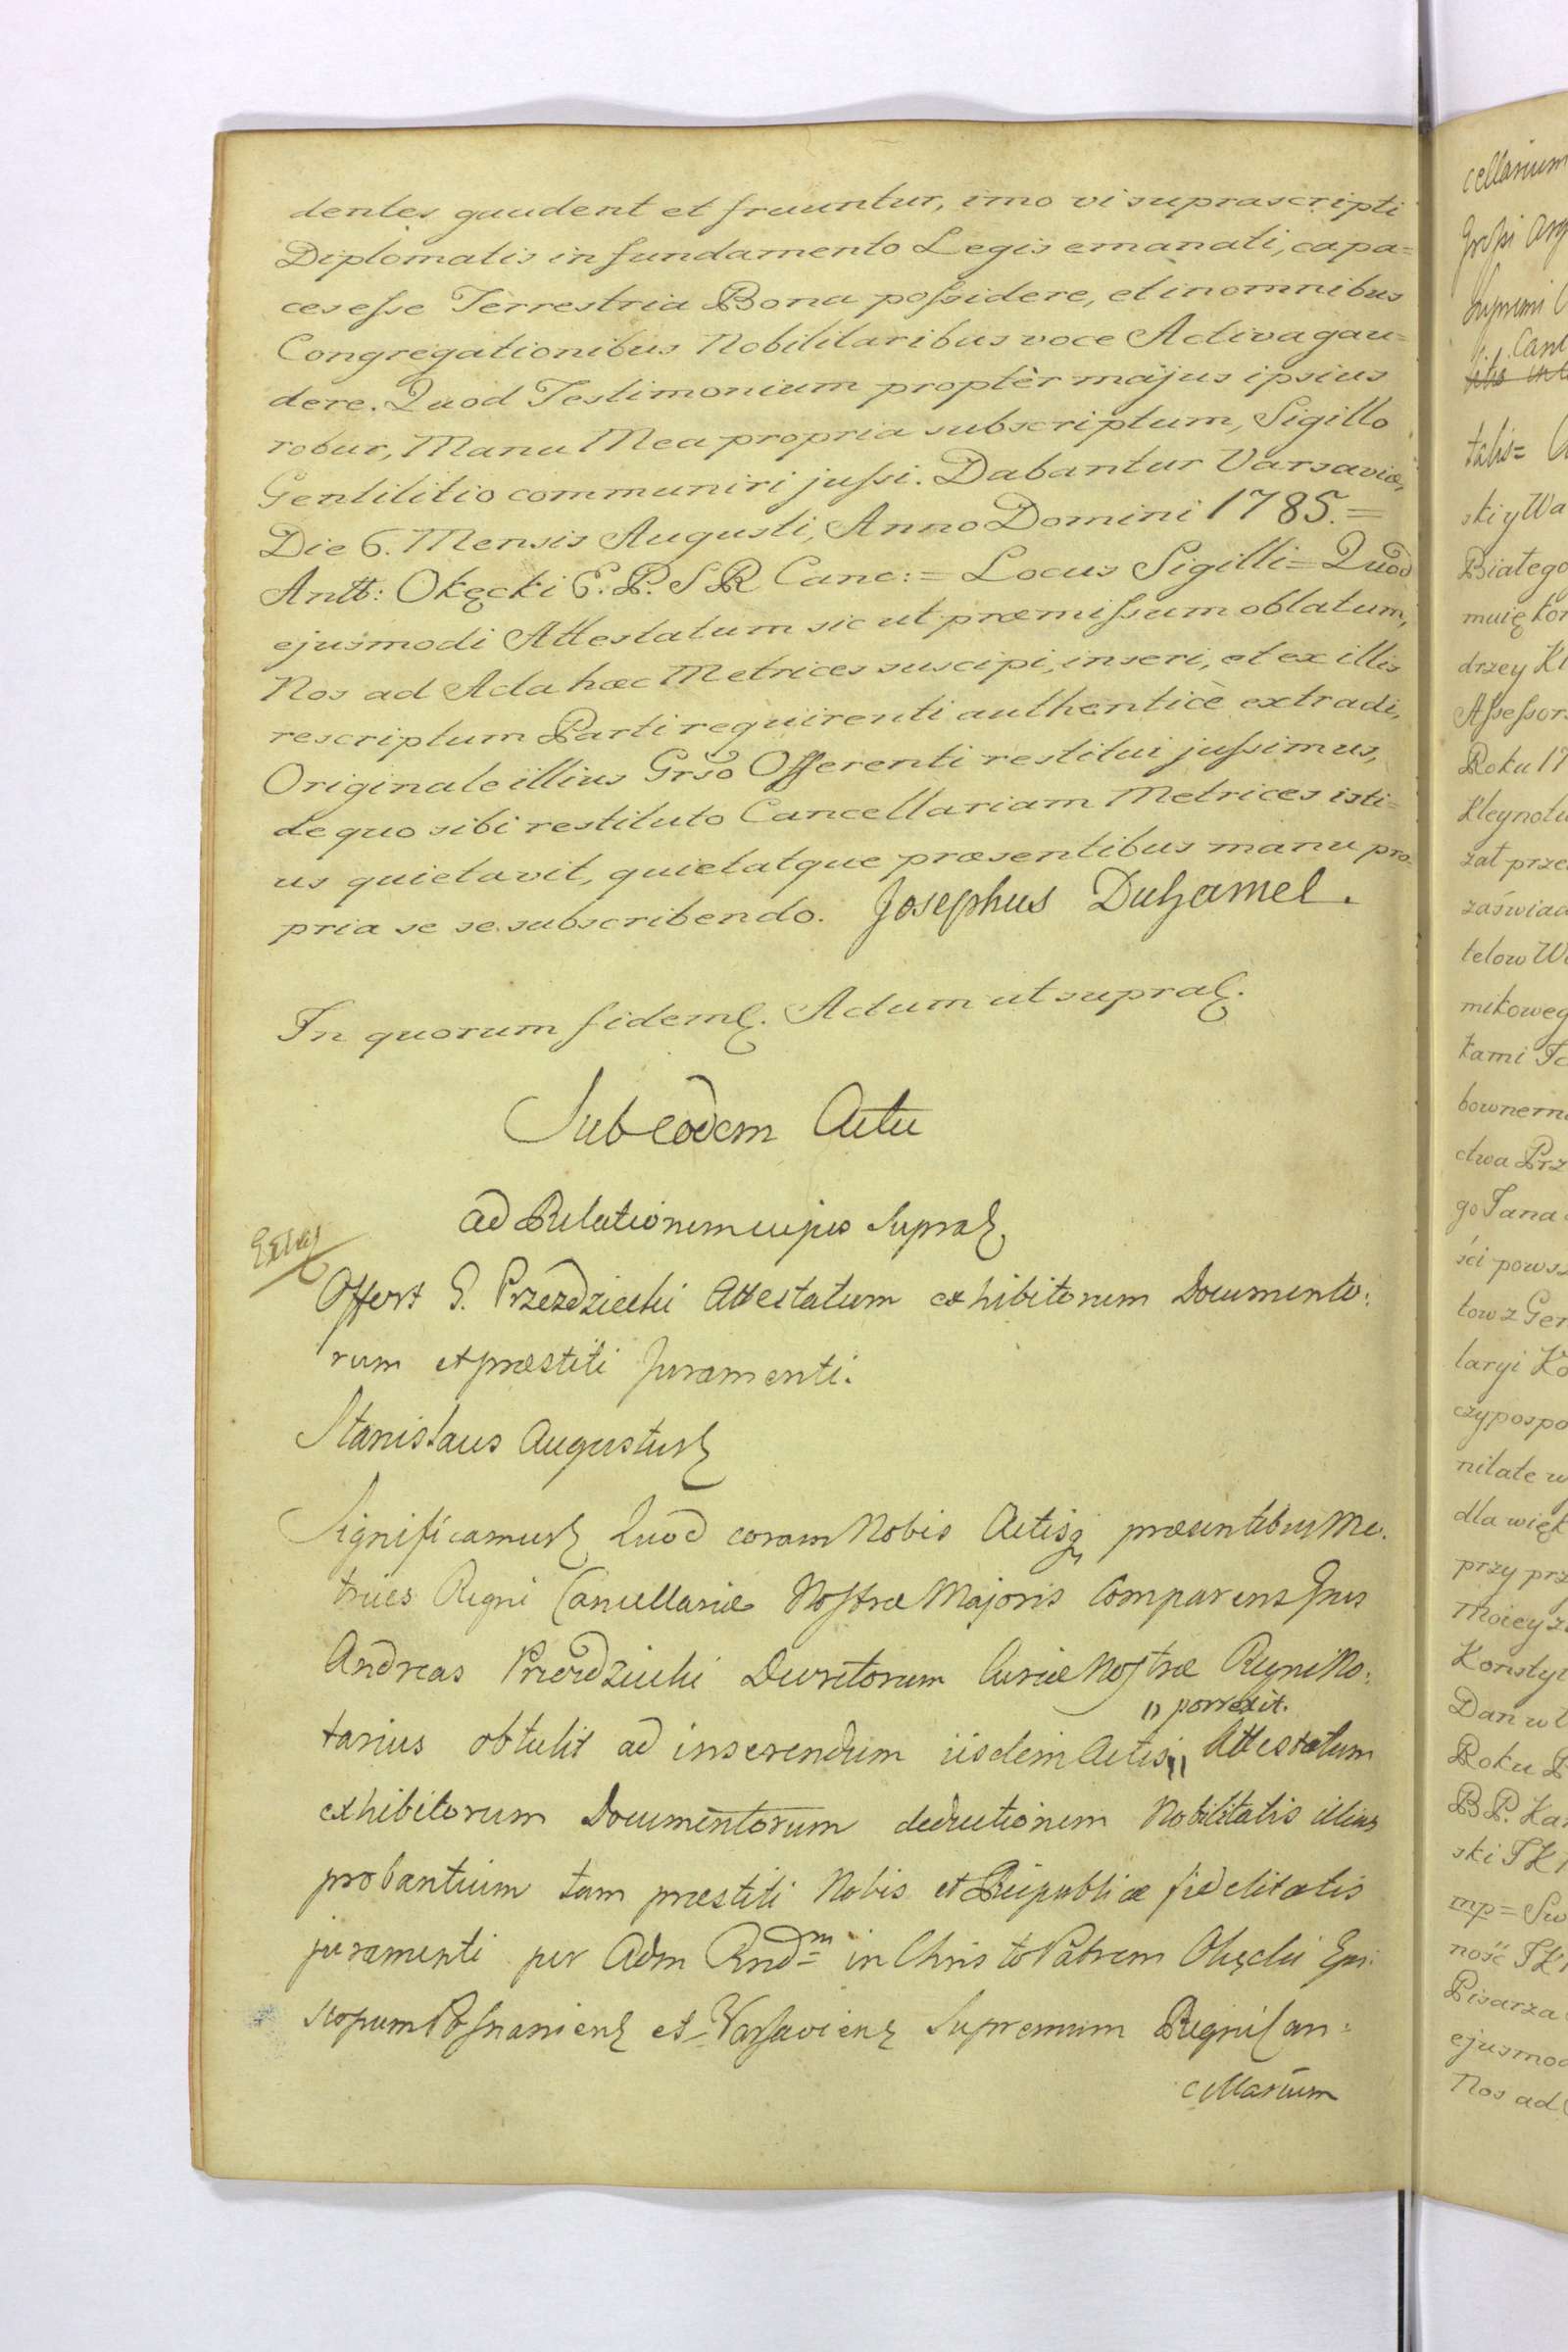 dentes gaudent et fruuntur, imo vi suprascripti
Diplomatis in fundamento Legis emanati, capa=
ces esse Terrestria Bona possidere, et in omnibus
Congregationibus Nobilitaribus voce Activa gau=
dere. Quod Testimonium proptèr majus ipsius
robur, Manu Mea propria subscriptum, Sigillo
Gentilitio communiri jussi. Dabantur Varsaviæ,
Die 6. Mensis Augusti, Anno Domini 1785.=
Antt: Okęcki E. P. S R Canc:= Locus Sigilli= Quod
ejusmodi Attestatum sic ut præmissum oblatum,
Nos ad Acta hæc Metrices suscipi, inseri, et ex illis
rescriptum Parti requirenti authenticè extradi,
Originale illius Grso Offerenti restitui jussimus,
de quo sibi restituto Cancellariam Metrices isti=
us quietavit, quietatque præsentibus manu pro=
pria se se subscribendo. Josephus Duhamel.
In quorum fidem. Actum ut supra.
Sub eodem Actu
ad Relationem cujus supra
Offert G. Przezdziecki Attestatum exhibitorum Documento:
rum et præstiti Juramenti.
Stanislaus Augustus
Significamus Quod coram Nobis Actisq præsentibus Me:
trices Regni Cancellariæ Nostræ Majoris Comparens Grus
Andreas Przezdziecki Decretorum Curiæ Nostræ Regni No:
" porrexit.
tarius obtulit ad inserendum iisdem Actis " Attestatum
exhibitorum Documentorum deductionem Nobilitatis illius
probantium tam præstiti Nobis et Reipublicæ fidelitatis
juramenti per Adm Rndm in Christo Patrem Okęcki Epi:
scopum Posnaniens et Varsaviens Supremum Regni Can:
cellarium
cellarium
talis=
ski y Wa
Białego
muię kon
drzey Kl
Assessors
Roku 17
Kleynotu
zał prze
zaświad
telow W
mikoweg
kami Ja
bownem
ctwa Prz
go Jana
ści powsz
tow z Gen
laryi Ko
czypospo
nitate w
dla więk
przy prz
Moiey z
Konstyt
Dan w
Roku P
B P. Kan
ski J K
mp = Sw
ność J K
Pisarza
ejusmod
Nos ad